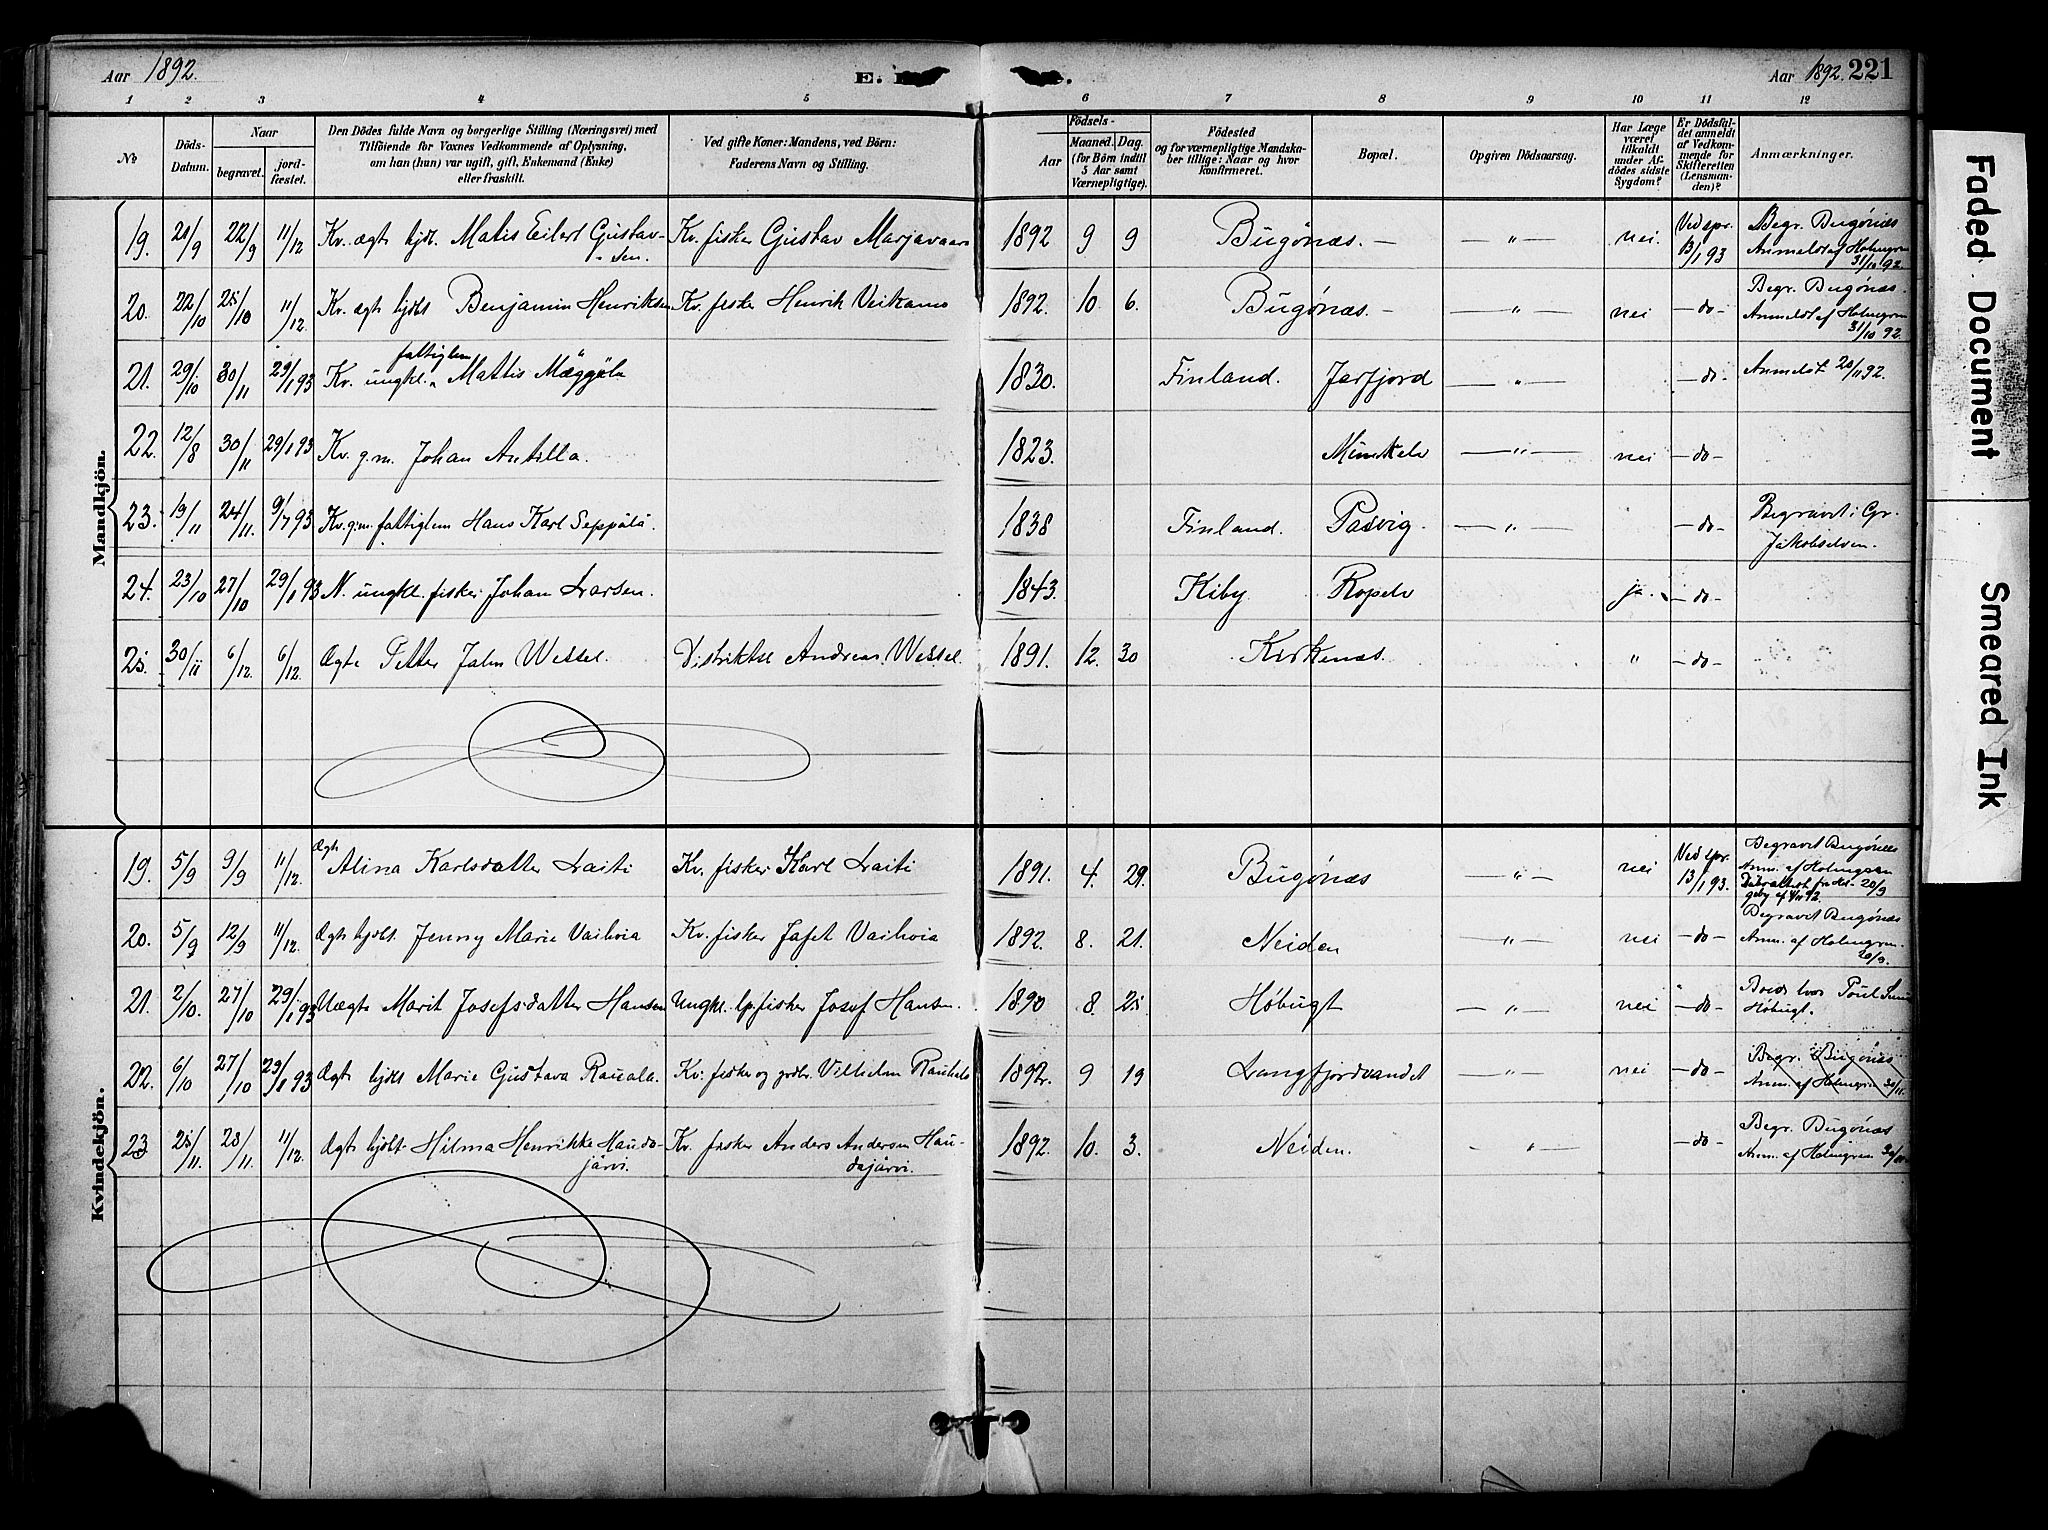 Aar 1892.
E.
Aar 1892. 221
1 2 3 4 5 6 7 8 9 10 11 12
No
Döds-Datum.
Naar
begravet.
jord-fæstet.
Den Dödes fulde Navn og borgerlige Stilling (Næringsvei) med
Tilföiende for Voxnes Vedkommende af Oplysning,
om han (hun) var ugift, gift, Enkemand (Enke)
eller fraskilt.
Ved gifte Koner: Mandens, ved Börn:
Faderens Navn og Stilling.
Födsels-
Aar
Maaned. Dag.
(for Börn indtil
5 Aar samt
Værnepligtige).
Födested
og for værnepligtige Mandska-
ber tillige: Naar og hvor
konfirmeret.
Bopæl.
Opgiven Dödsaarsag.
Har Læge
været
tilkaldt
under Af-
dödes sidste
Sygdom?
Er Dödsfal-
det anmeldt
af Vedkom-
mende for
Skifteretten
(Lensman-
den)?
Anmærkninger.
Mandkjön.
19. 20/9 22/9 11/12 Kv. ægte hjdt. Matis Eilert Gustav-sen. Kv. fisker Gustav Marjavaara 1892 9 9 Bugönæs. — — " — nei. Ved spr. 13/1 93 Begr. Bugönæs Anmeldt af Holmgren 31/10 92.
20. 22/10 25/10 11/12 Kv. ægte hjdt Benjamin Henriksen Kv. fisker Henrik Veikamo 1892. 10 6. Bugönæs. — — " — nei — do — Begr. Bugönæs. Anmeldt af Holmgren 31/10 92.
21. 29/10 30/11 29/1 93 Kv. ungkl. fattiglem Mattis Mäggölä 1830. Finland. Jarfjord — " — — do — Anmeldt 20/11 92.
22. 12/8 30/11 29/1 93 Kv. g.m. Johan Antilla. 1823. Munkelv — " — nei — do —
23. 19/11 24/11. 9/7 93 Kv. g.m. fattiglem Hans Karl Seppälä. 1838 Finland. Pasvig. — " — — do — Begravet i Gr. Jakobselven.
24. 23/10 27/10 29/1 93 N. ungkl. fisker Johan Larsen. 1843. Kiby Ropelv ja. — do —
25. 30/11 6/12. 6/12. Ægte Petter Jahn Wessel. Distriktsl. Andreas Wessel. 1891. 12. 30 Kirkenæs. " — do —
Kvindekjön.
19. 5/9 9/9 11/12. Ægte Alina Karlsdatter Laiti Kv. fisker Karl Laiti 1891. 4. 29. Bugönæs — " — nei Ved spr. 13/1 93. Begravet Bugönæs Anm. af Holmgren 20/9
20. 5/9 12/9 11/12. Ægte hjdt. Jenny Marie Vaihoia Kv. fisker Jafet Vaihoia 1892. 8. 21. Neiden — " — nei — do — Begravet Bugönæs Anm. af Holmgren. 20/9.
21. 2/10. 27/10 29/1 93 Uægte Marit Josefsdatter Hansen Ungkl. lp. fisker Josef Hansen. 1890 8. 25 Höbugt — " — nei — do — Boede hos Poul Höbugt.
22. 6/10 27/10 29/1 93 Ægte hjdt Marie Gustava Rauala. Kv. fisker og grdbr. Vilhelm Rauhala 1892. 9 19 Langfjordvandet — " — nei — do — Begr. Bugönæs Anm. af Holmgren 30/11.
23 25/11. 28/11. 11/12. Ægte hjdt Hilma Henrikke Hauda-järvi. Kv. fisker Anders Andersen Hau-dajärvi. 1892. 10. 3. Neiden. — " — — do — Begr. Bugönæs Anm. af Holmgren
Faded Document
Smeared Ink